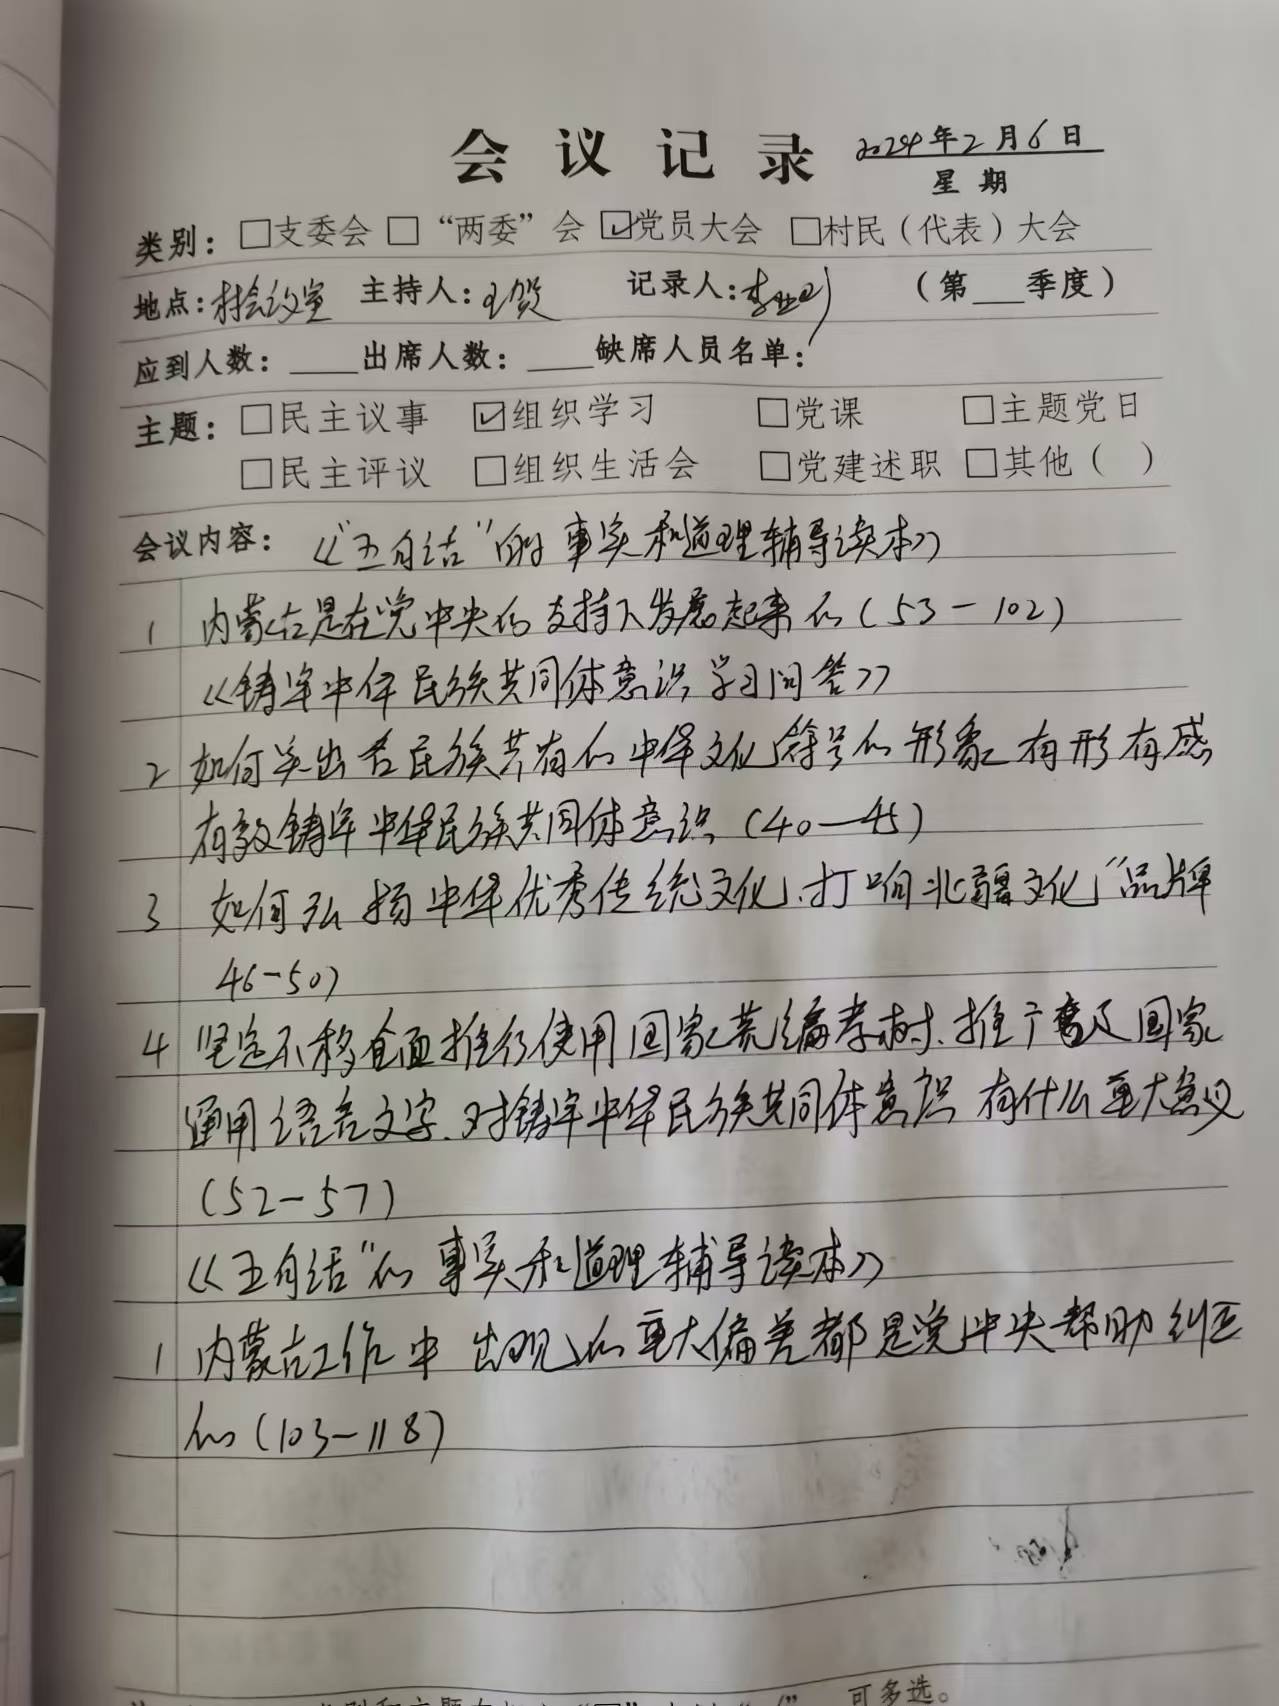 会议记录 2024年2月6日
星期
类别：□支委会 □“两委”会 ☑党员大会 □村民（代表）大会
地点：村会议室 主持人：王贺 记录人：李 （第___季度）
应到人数：____出席人数：____缺席人员名单：
主题：□民主议事 ☑组织学习 □党课 □主题党日
□民主评议 □组织生活会 □党建述职 □其他（ ）
会议内容：《“五句话”的事实和道理辅导读本》
1 内蒙古是在党中央的支持下发展起来的（53－102）
《铸牢中华民族共同体意识学习问答》
2 如何突出各民族共有的中华文化符号的形象 有形有感
有效铸牢中华民族共同体意识（40—45）
3 如何弘扬中华优秀传统文化、打响北疆文化”品牌
46-50）
4 坚定不移全面推行使用国家统编教材、推广普及国家
通用语言文字、对铸牢中华民族共同体意识 有什么重大意义
（52－57）
《五句话”的事实和道理辅导读本》
1 内蒙古工作中 出现的重大偏差都是党中央帮助纠正
的（103－118）
可多选。